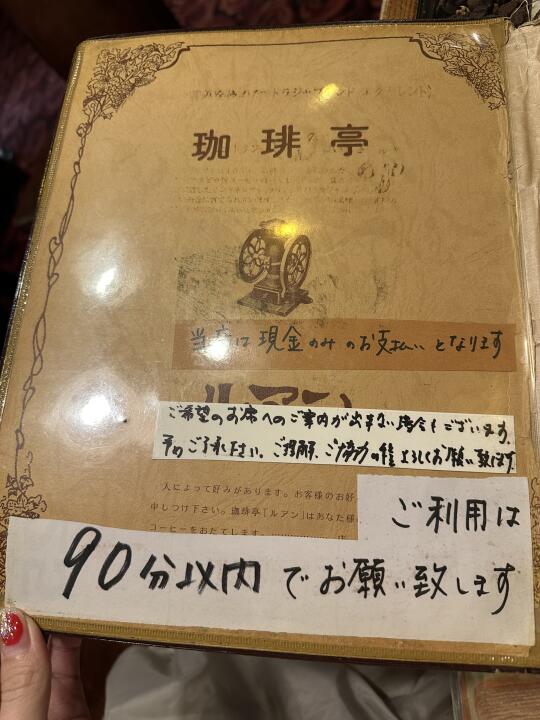 珈琲亭
当店は現金のみのお支払いとなります
ルアン
ご希望のお席へのご案内が出来ない場合もございます。
予めご了承下さい。ご理解、ご協力の程よろしくお願い致します。
人によって好みがあります。お客様のお好
申しつけ下さい。珈琲亭「ルアン」はあなた様
コーヒーをおたてします。
ご利用は
90分以内でお願い致します